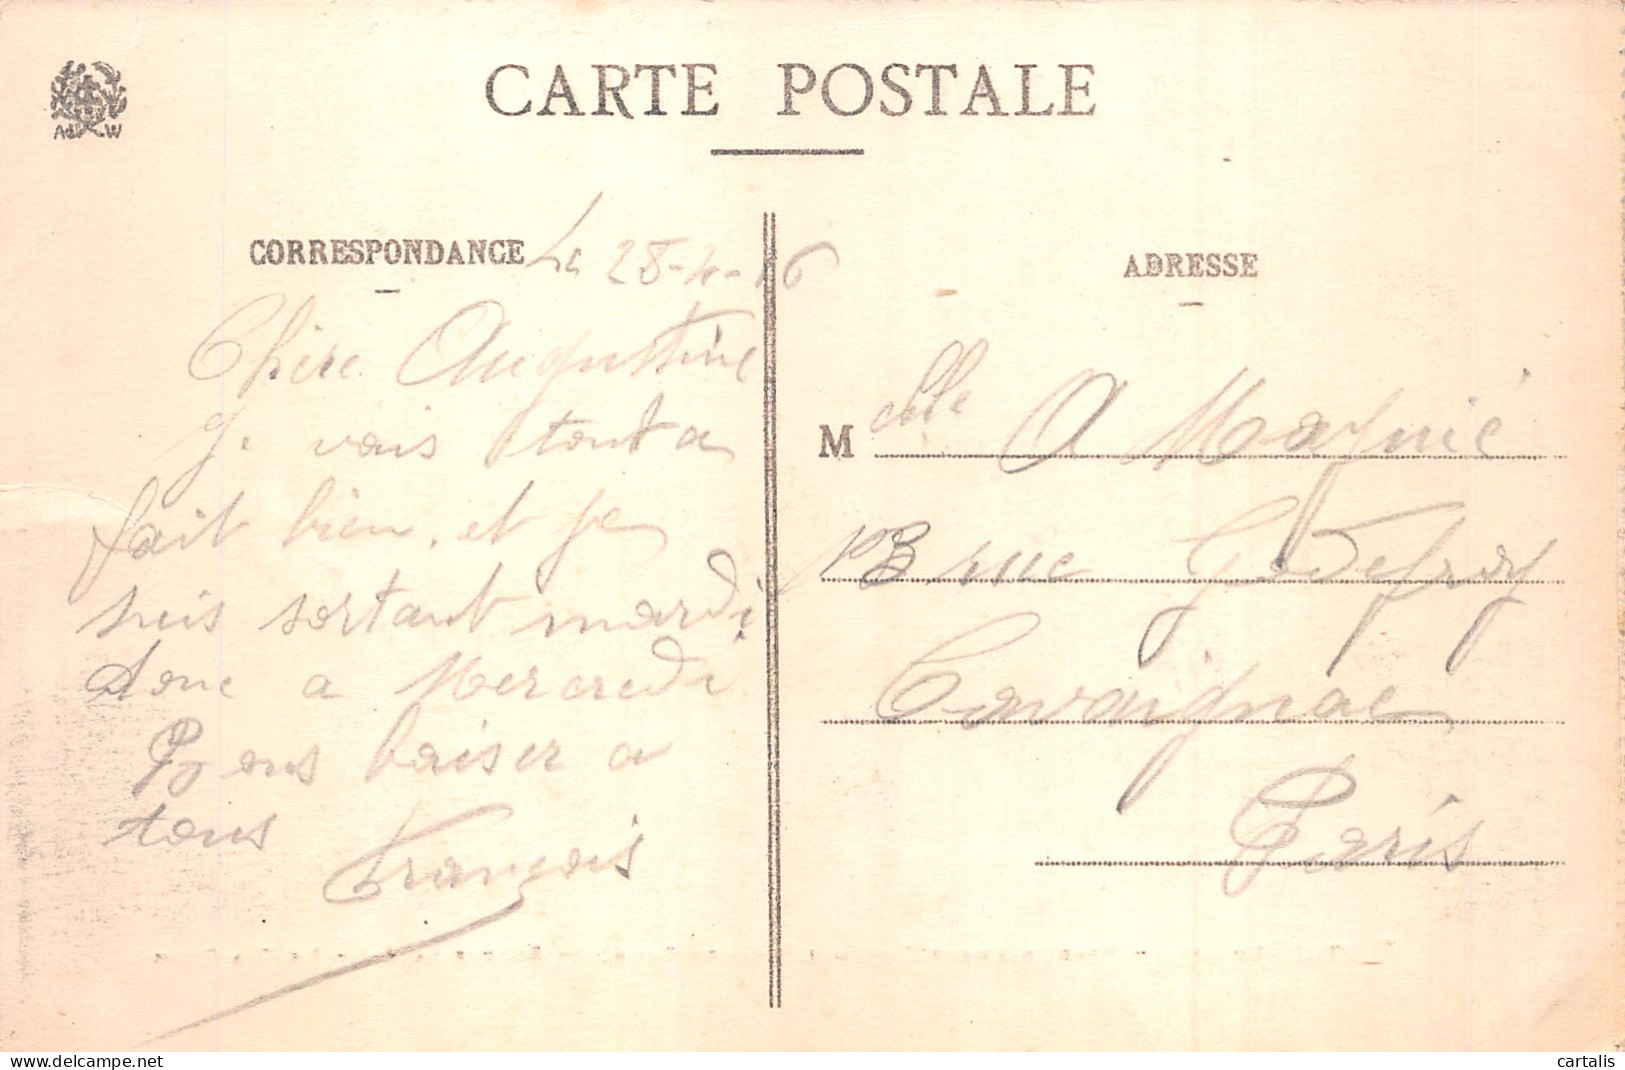 CARTE POSTALE
A W
CORRESPONDANCE
Le 28-4-16
Chère Augustine
Je vais tout a
fait bien, et je
suis sortant mardi
donc a Mercredi
Bons baiser a
tous
François
ADRESSE
Melle A Magnié
13 rue Godefroy
Cavaignac
Paris
delcampe.net
cartalis